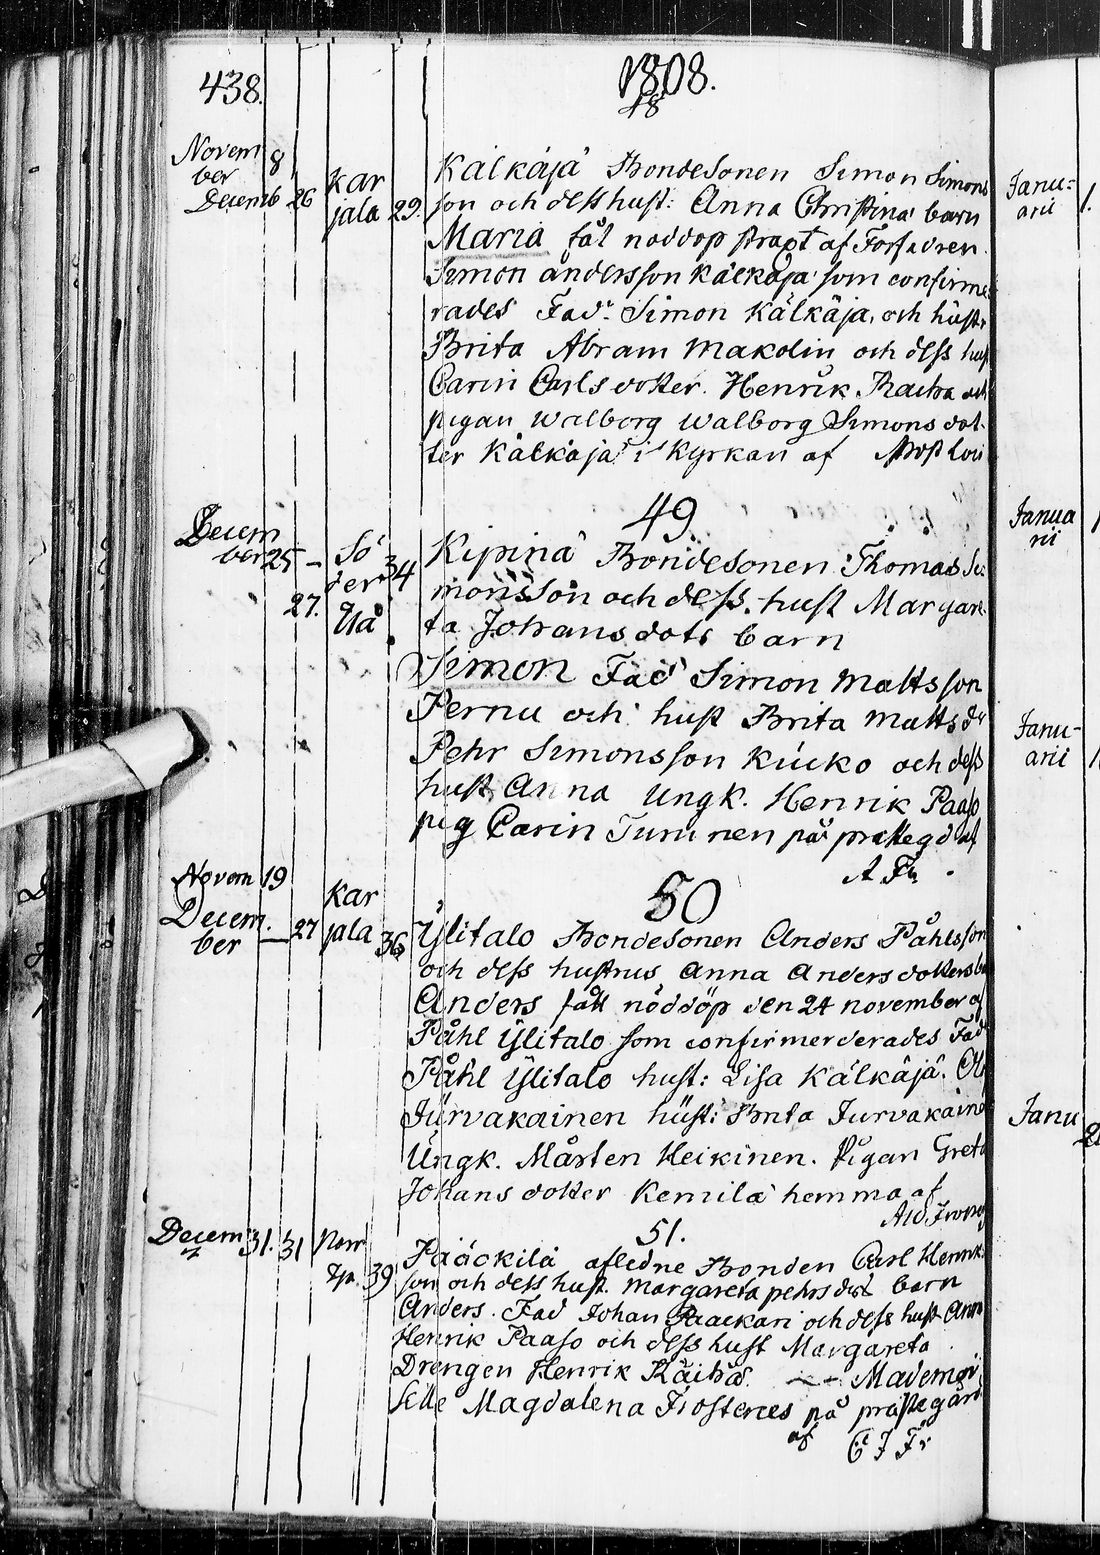 438.
1808.
48
Novem 8
ber
Decemb 26
Kar
jala 29.
Kälkäjä Bondesonen Simon Simons
son och dess hust: Anna Christina barn
Maria fåt nöddop straxt af Forfadren
Simon andersson Kälkäjä som confirme
rades Fad: Simon Kälkäjä, och hustr
Brita Abram Makolin och dess hust
Carin Carlsdotter. Henrik och
pigan Walborg Walborg Simonsdot-
ter Kälkäjä i Kyrkan af
49.
Decem
ber 25 –
27.
Sö
der
Uå
34
Kipinä Bondesonen Thomas Si
monsson och dess hust Margare
ta Johansdotr barn
Simon Fad Simon Mattsson
Pernu och hust Brita Mattsdr
Pehr Simonsson Kuuko och dess
hust Anna Ungk. Henrik Paaso
pig Carin Turunen på prstegd af
A Fr.
50
Novem 19
Decem.
ber — 27
Kar
jala 36
Ylitalo Bondesonen Anders Påhlsson
och dess hustrus Anna Andersdotters b
Anders fått nöddöp den 24 november af
Påhl Ylitalo som confirmerderades Fad
Påhl Ylitalo hust: Lisa Kälkäjä. Ol
Jurvakainen hust: Brita Jurvakaine
Ungk. Mårten Heikinen. Pigan Greta
Johansdotter Kemilä hemma af
51.
Decem 31. 31 Norr
39
Pääckilä aflidne Bonden Carl Henrik
son och dess hust. Margareta pehrsdot barn
Anders. Fad Johan Paackari och dess hust Anna
Henrik Paaso och dess hust Margareta
Drengen Henrik Räihä — Mademoi
selle Magdalena Frosterus på prästegård
af C J Fr
Janu=
arii 1.
Janua
rii
Janu-
arii
Janu